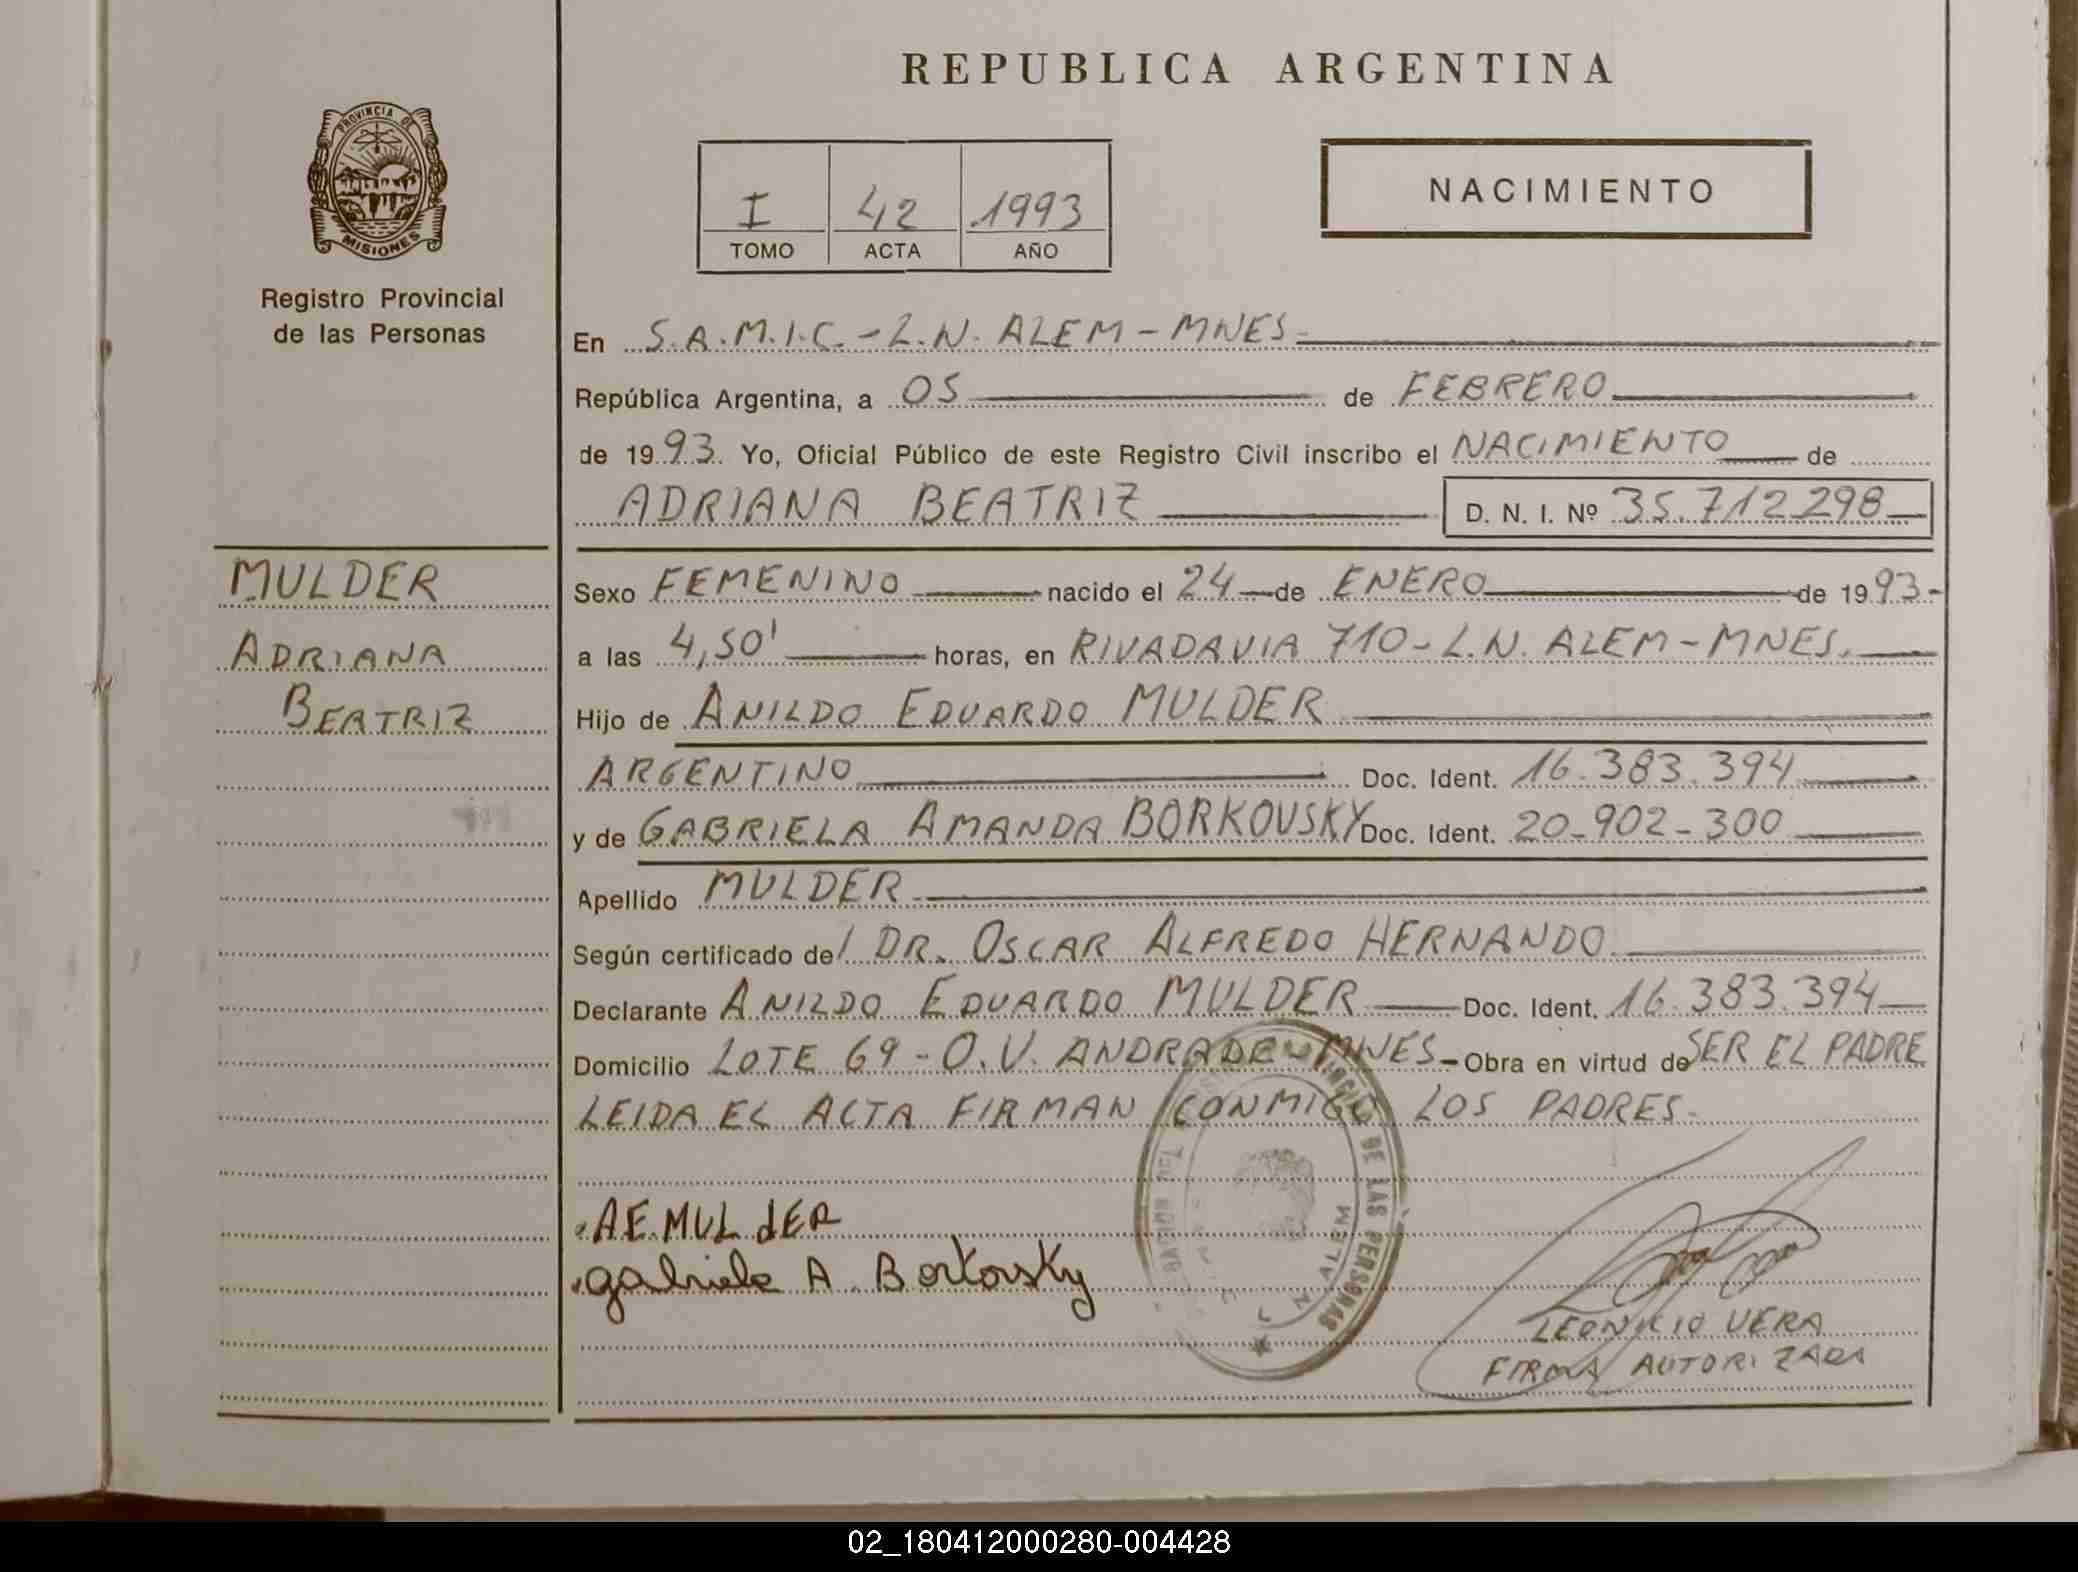 REPUBLICA ARGENTINA
PROVINCIA DE
MISIONES
Registro Provincial
de las Personas
I 42 1993
TOMO ACTA AÑO
NACIMIENTO
En S.A.M.I.C.-L.N. ALEM-MNES-
República Argentina, a 05 de FEBRERO
de 1993. Yo, Oficial Público de este Registro Civil inscribo el NACIMIENTO de
ADRIANA BEATRIZ D. N. I. Nº 35.712298
MULDER
ADRIANA
BEATRIZ
Sexo FEMENINO nacido el 24 de ENERO de 1993-
a las 4,50' horas, en RIVADAVIA 710-L.N. ALEM-MNES.
Hijo de ANILDO EDUARDO MULDER
ARGENTINO Doc. Ident. 16.383.394
y de GABRIELA AMANDA BORKOVSKY Doc. Ident. 20-902-300
Apellido MULDER
Según certificado de/ DR. OSCAR ALFREDO HERNANDO
Declarante ANILDO EDUARDO MULDER Doc. Ident. 16.383.394
Domicilio LOTE 69-O.V. ANDRADE-MNES- Obra en virtud de SER EL PADRE
LEIDA EL ACTA FIRMAN CONMIGO LOS PADRES-
A E. MULdER
gabriela A. Borkovsky
DE LAS PERSONAS
L N ALEM
LEONICIO VERA
FIRMA AUTORIZADA
02_180412000280-004428